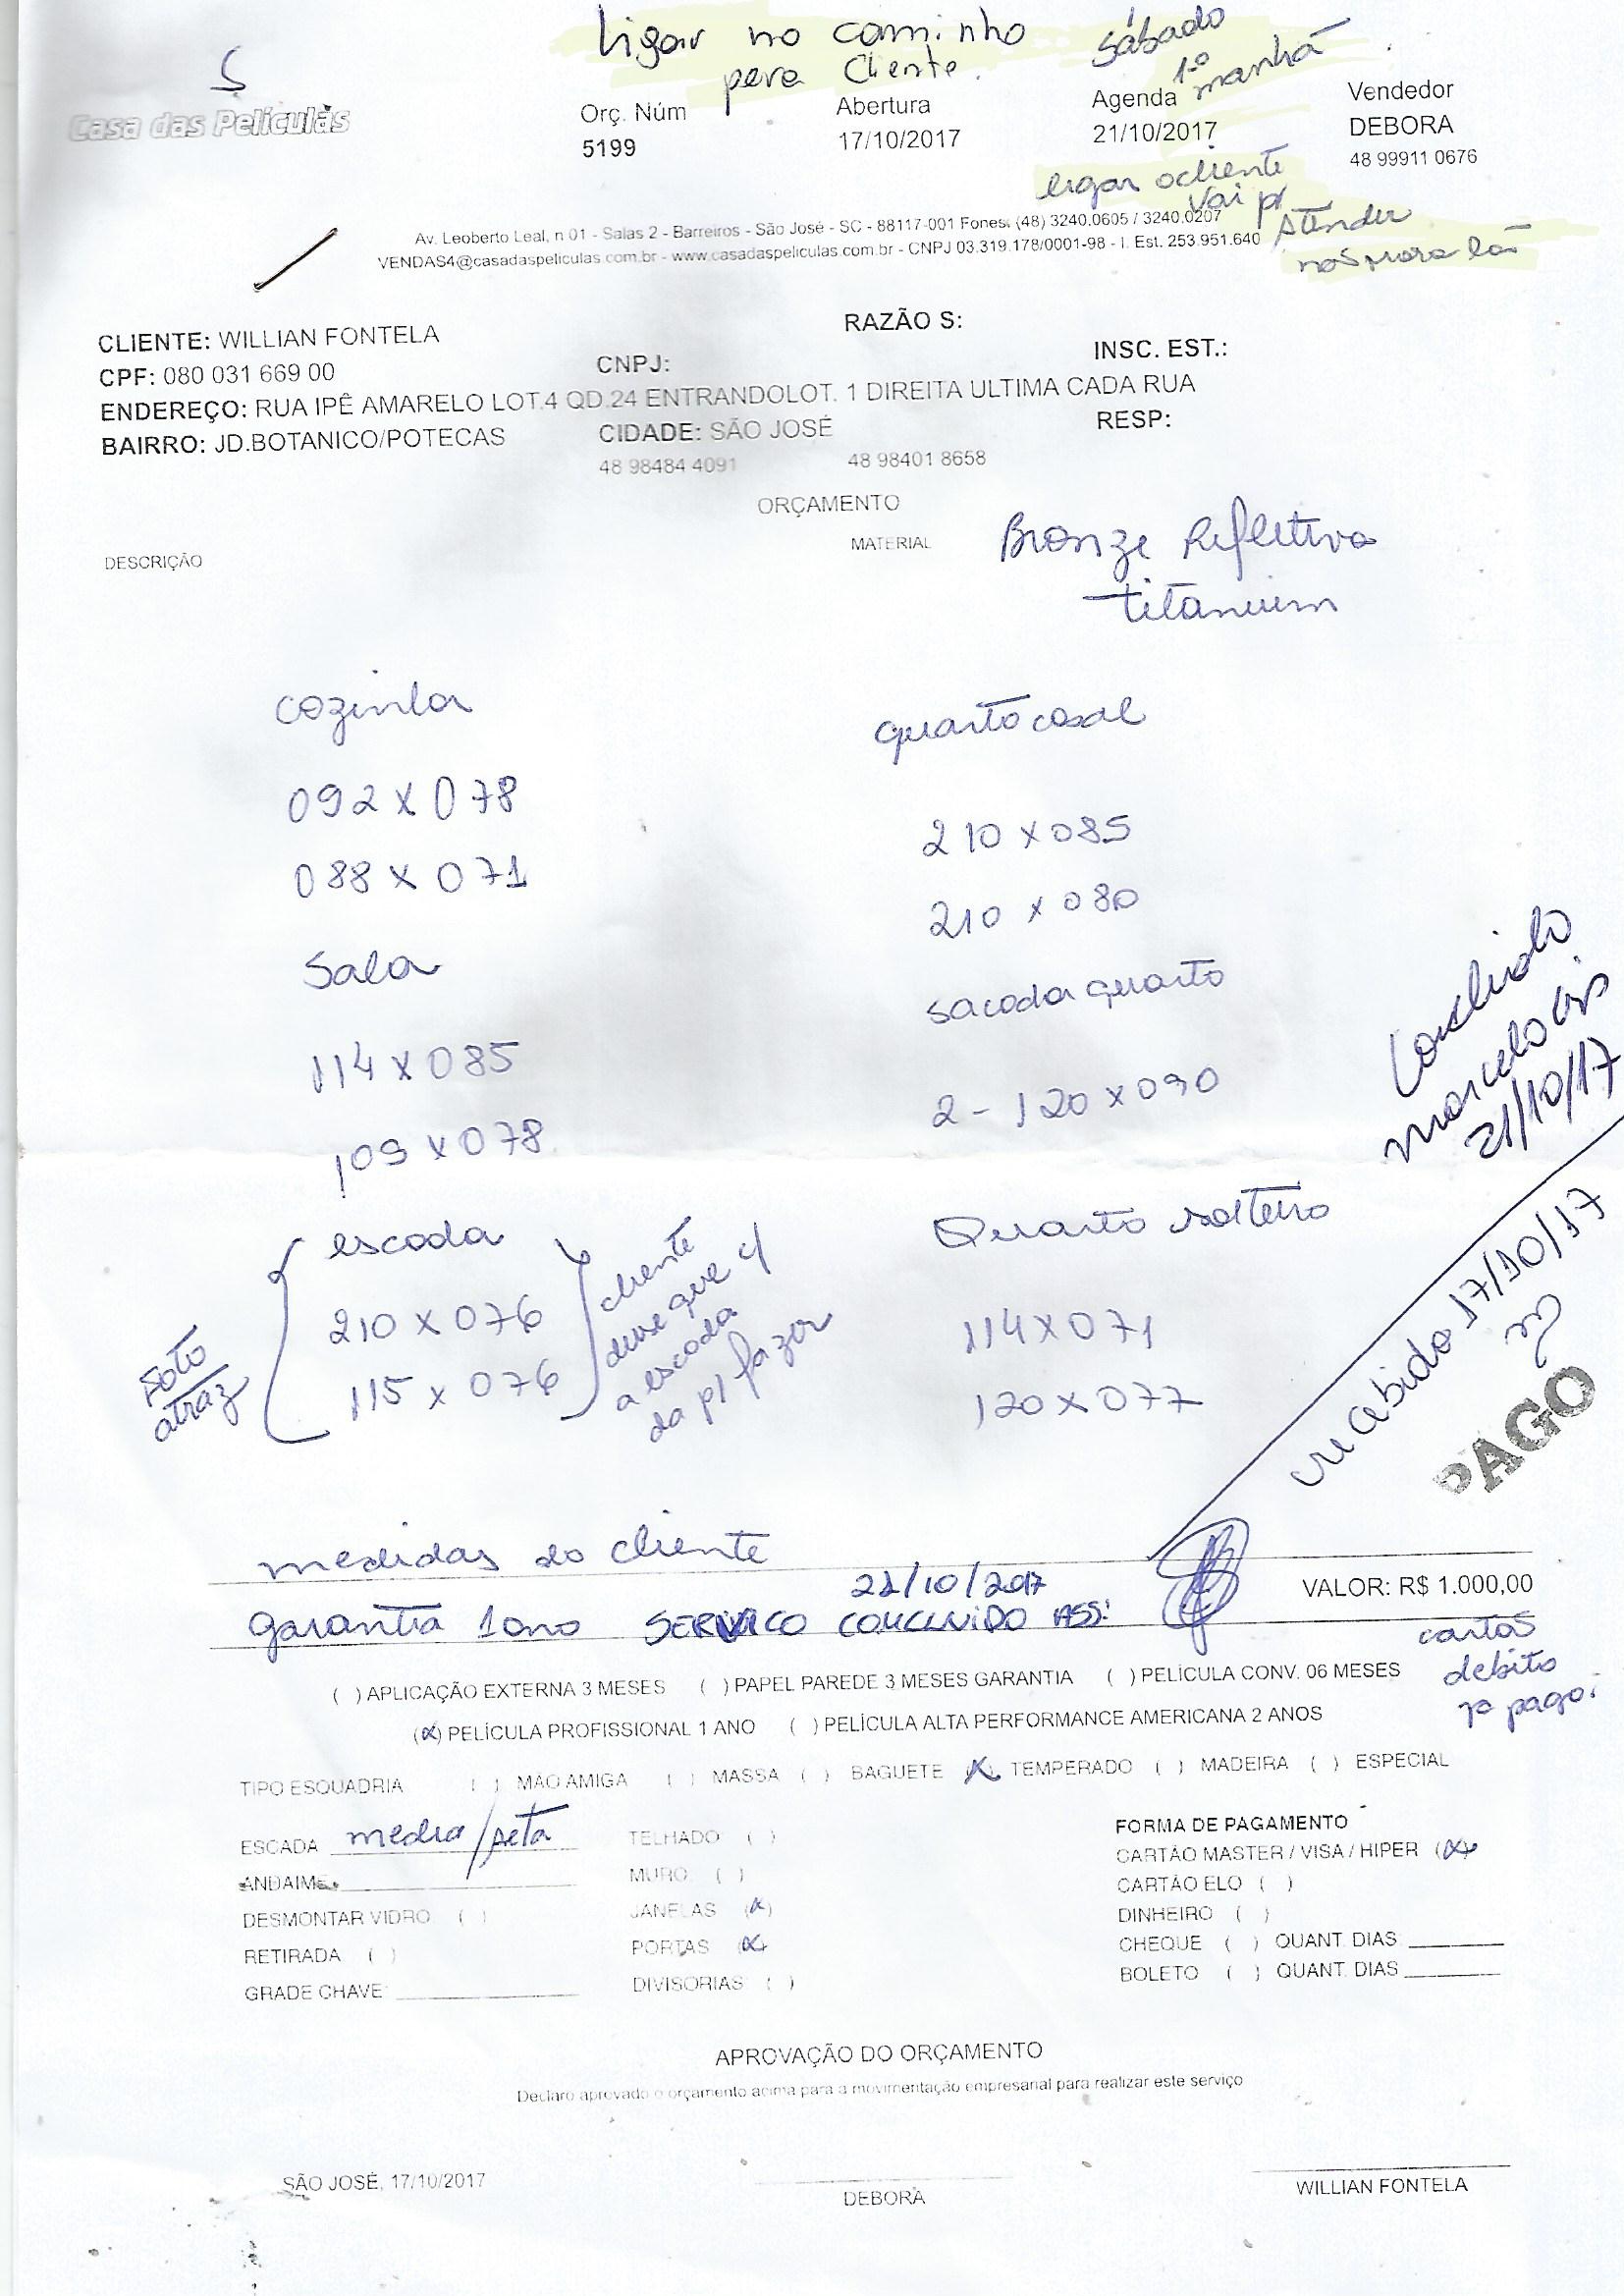 Ligar no caminho
para Cliente.
sábado
1º manhã
Casa das Películas
Orç. Núm
5199
Abertura
17/10/2017
Agenda
21/10/2017
Vendedor
DEBORA
48 99911 0676
ligar o cliente
Vai p/
Atender
não mora lá
Av. Leoberto Leal, n 01 - Salas 2 - Barreiros - São José - SC - 88117-001 Fones: (48) 3240.0605 / 3240.0207
VENDAS4@casadaspeliculas.com.br - www.casadaspeliculas.com.br - CNPJ 03.319.178/0001-98 - I. Est. 253.951.640
CLIENTE: WILLIAN FONTELA
RAZÃO S:
CPF: 080 031 669 00
CNPJ:
INSC. EST.:
ENDEREÇO: RUA IPÊ AMARELO LOT.4 QD.24 ENTRANDOLOT. 1 DIREITA ULTIMA CADA RUA
BAIRRO: JD.BOTANICO/POTECAS
CIDADE: SÃO JOSÉ
RESP:
48 98484 4091
48 98401 8658
ORÇAMENTO
DESCRIÇÃO
MATERIAL
Bronze Refletiva
titanium
cozinha
092 x 078
088 x 071
Sala
114 x 085
109 x 078
escada
210 x 076
115 x 076
foto
atraz
cliente
disse que c/
a escada
da p/ fazer
quarto casal
210 x 085
210 x 080
sacada quarto
2 - 120 x 090
Quarto solteiro
114 x 071
120 x 077
Concluido
marcelo
21/10/17
recebido 17/10/17
PAGO
medidas do cliente
21/10/2017
VALOR: R$ 1.000,00
garantia 1 ano SERVICO CONCLUIDO ASS:
cartão
debito
pago.
( ) APLICAÇÃO EXTERNA 3 MESES ( ) PAPEL PAREDE 3 MESES GARANTIA ( ) PELÍCULA CONV. 06 MESES
(x) PELÍCULA PROFISSIONAL 1 ANO ( ) PELÍCULA ALTA PERFORMANCE AMERICANA 2 ANOS
TIPO ESQUADRIA ( ) MAO AMIGA ( ) MASSA ( ) BAGUETE (x) TEMPERADO ( ) MADEIRA ( ) ESPECIAL
ESCADA media/reta
ANDAIME
DESMONTAR VIDRO ( )
RETIRADA ( )
GRADE CHAVE:
TELHADO ( )
MURO ( )
JANELAS (x)
PORTAS (x)
DIVISORIAS ( )
FORMA DE PAGAMENTO
CARTÃO MASTER / VISA / HIPER (x)
CARTÃO ELO ( )
DINHEIRO ( )
CHEQUE ( ) QUANT. DIAS
BOLETO ( ) QUANT. DIAS
APROVAÇÃO DO ORÇAMENTO
Declaro aprovado o orçamento acima para a movimentação empresarial para realizar este serviço
SÃO JOSÉ, 17/10/2017
DEBORA
WILLIAN FONTELA